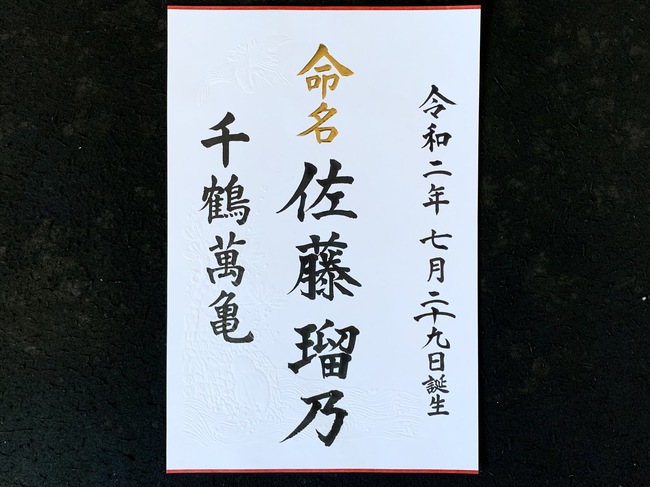 令和二年七月二十九日誕生
命名 佐藤瑠乃
千鶴萬亀